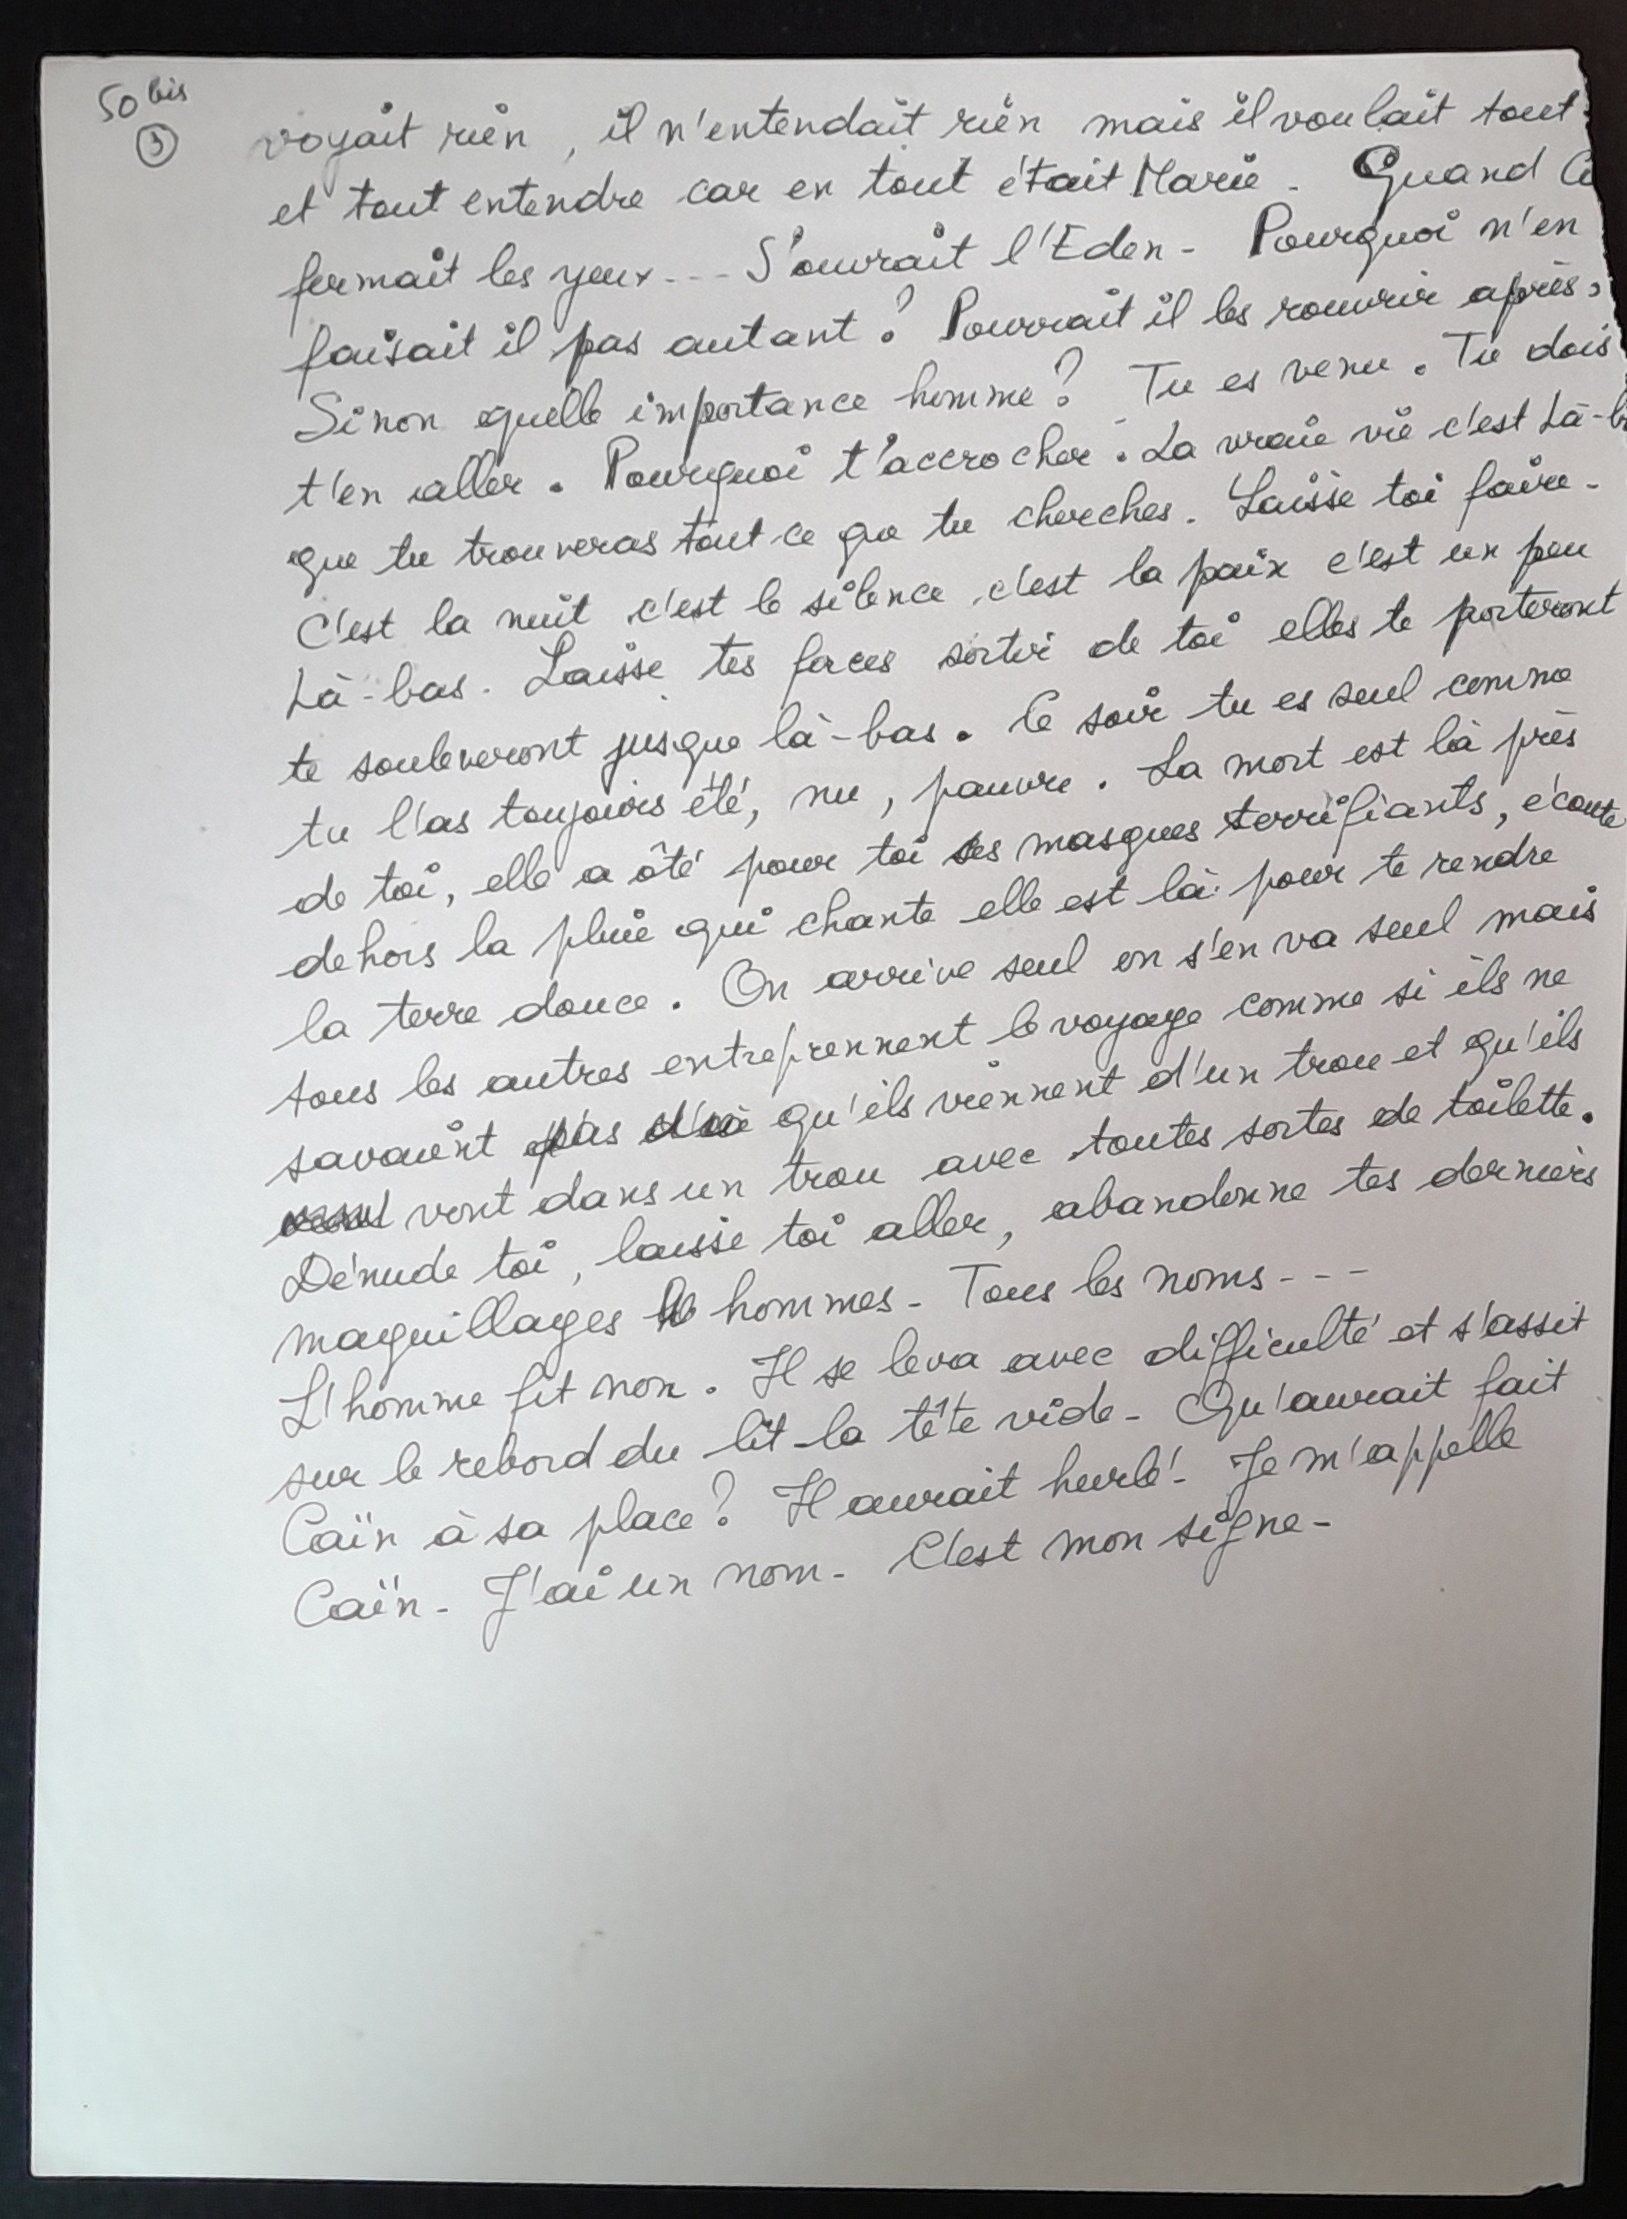 50 bis
3
voyait rien, il n'entendait rien mais il voulait tout
et tout entendre car en tout était Marie. Quand
fermait les yeux... S'ouvrait l'Eden - Pourquoi n'en
faisait il pas autant? Pourrait il les rouvrir après.
Sinon quelle importance homme? Tu es venu. Tu dois
t'en aller. Pourquoi t'accrocher. La vraie vie c'est Là-b
que tu trouveras tout ce que tu cherches. Laisse toi faire -
C'est la nuit c'est le silence c'est la paix c'est un peu
Là-bas. Laisse tes forces sortir de toi elles te porteront
te souleveront jusque là-bas. Ce soir tu es seul comme
tu l'as toujours été, nu, pauvre. La mort est là près
de toi, elle a ôté pour toi ses masques terrifiants, écoute
dehors la pluie qui chante elle est là pour te rendre
la terre douce. On arrive seul on s'en va seul mais
tous les autres entreprennent le voyage comme si ils ne
savaient pas qu'ils viennent d'un trou et qu'ils
vont dans un trou avec toutes sortes de toilette.
Dénude toi, laisse toi aller, abandonne tes derniers
maquillages hommes - Tous les noms - - -
L'homme fit non. Il se leva avec difficulté et s'assit
sur le rebord du lit - la tête vide - Qu'aurait fait
Caïn à sa place? Il aurait hurlé! Je m'appelle
Caïn - J'ai un nom - C'est mon signe -